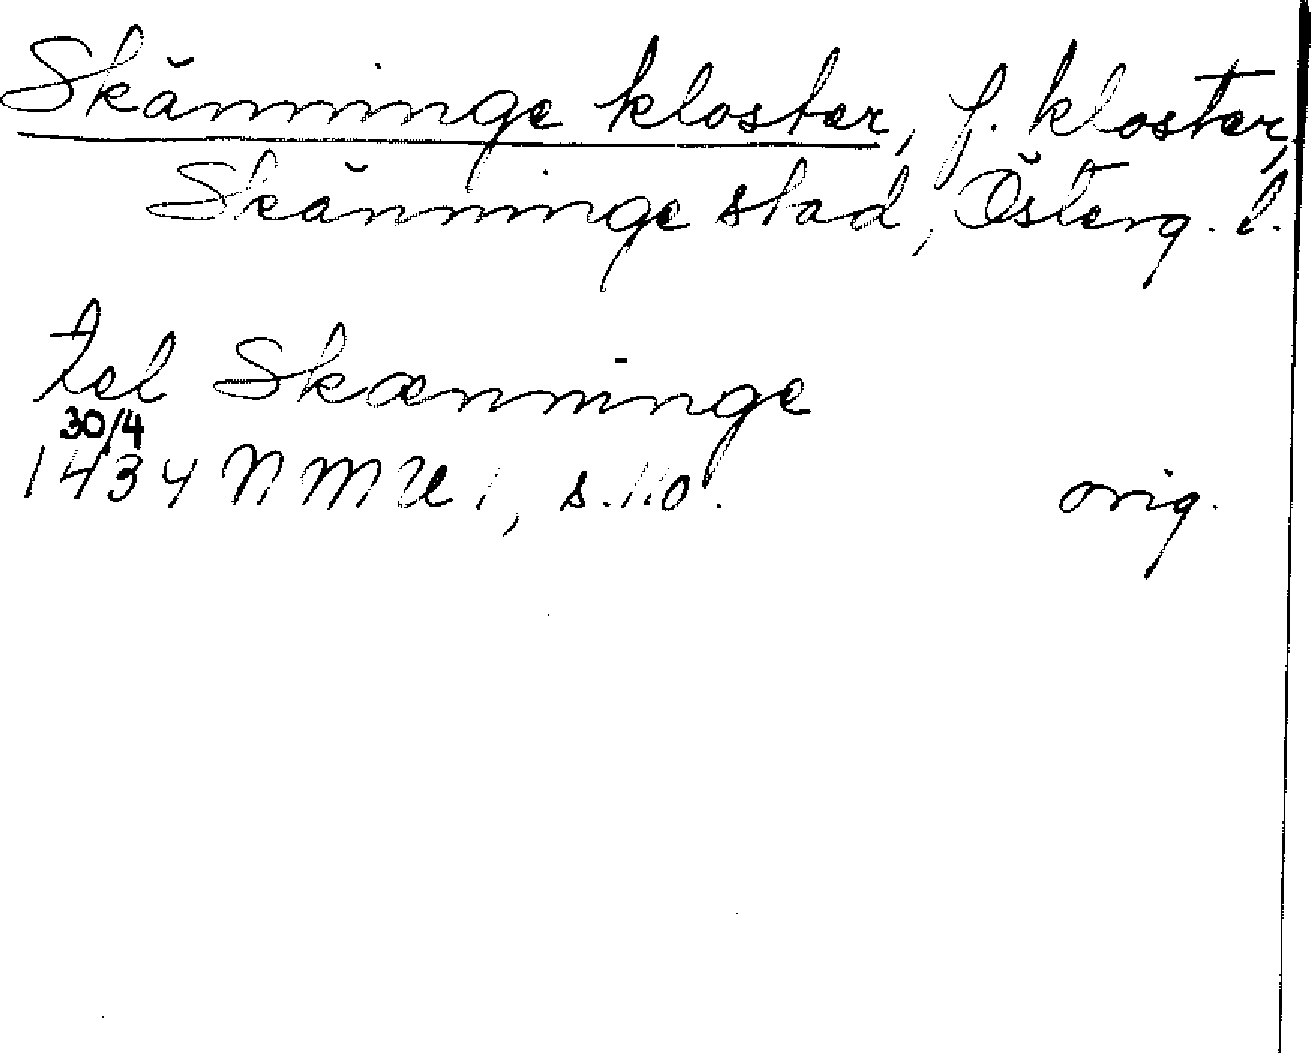 Skänninge kloster, f. kloster,
Skänninge stad, Österg. l.
tel Skænninge
30/4
1434 NMU 1, s. 110. orig.